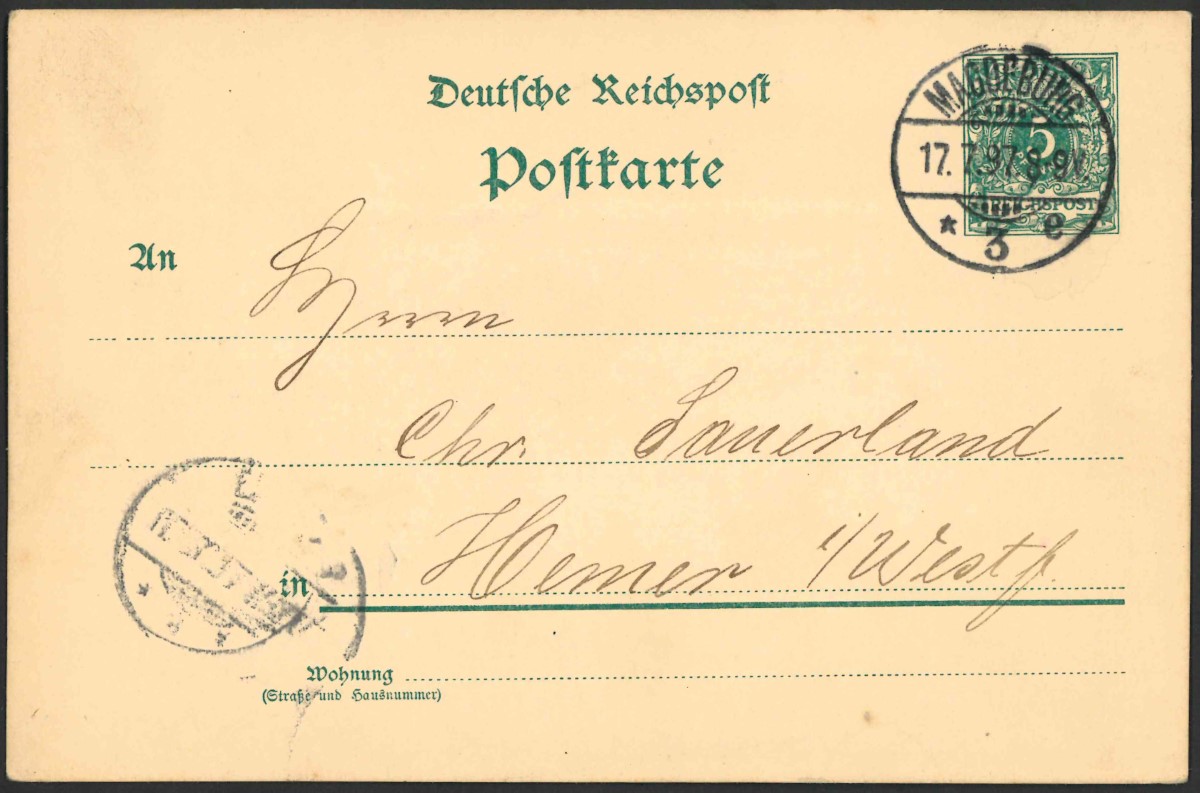 Deutsche Reichspost
Postkarte
MAGDEBURG
17.7.97. 8-9V.
* 3 e
5
REICHSPOST
An
Herrn
Chr. Sauerland
in Hemer i/Westf.
Wohnung
(Straße und Hausnummer)